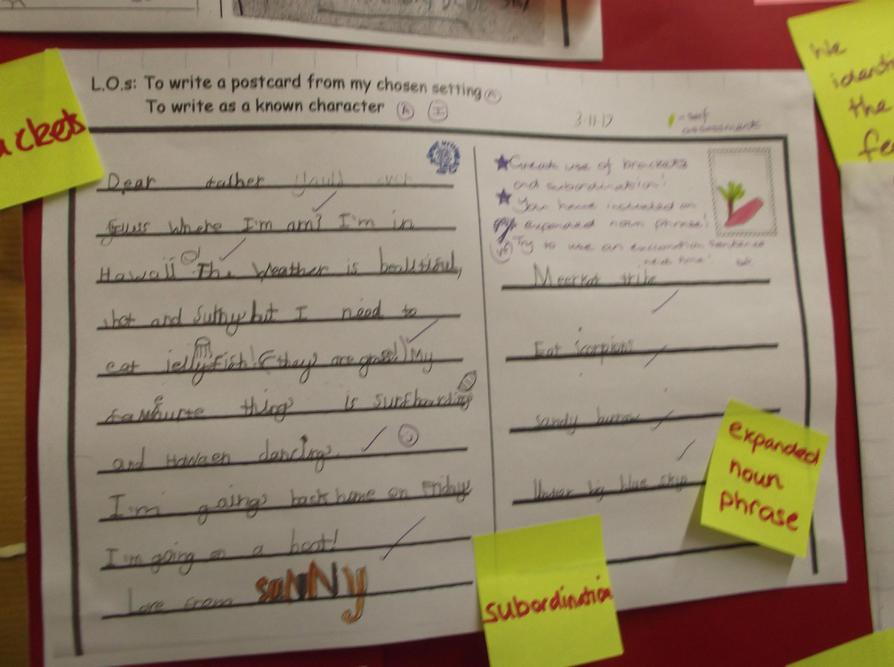 ackets
L.O.s: To write a postcard from my chosen setting
To write as a known character
3-11-17
= self
assessments
Dear father
guess where I'm am? I'm in
Hawaii The Weather is beautiful,
hot and sunny but I need to
eat jellyfish! (they are gross!) My
favourite things is surfboarding
and Hawaen dancing.
I'm going back home on Friday
I'm going on a boat!
Love from SUNNY
Great use of brackets
and subordination!
You have included an
expanded noun phrase!
Try to use an exclamation sentence
next time!
Meerkat tribe
Eat Scorpions
sandy burrow
Under big blue sky
expanded
noun
phrase
subordination
We
the
fe